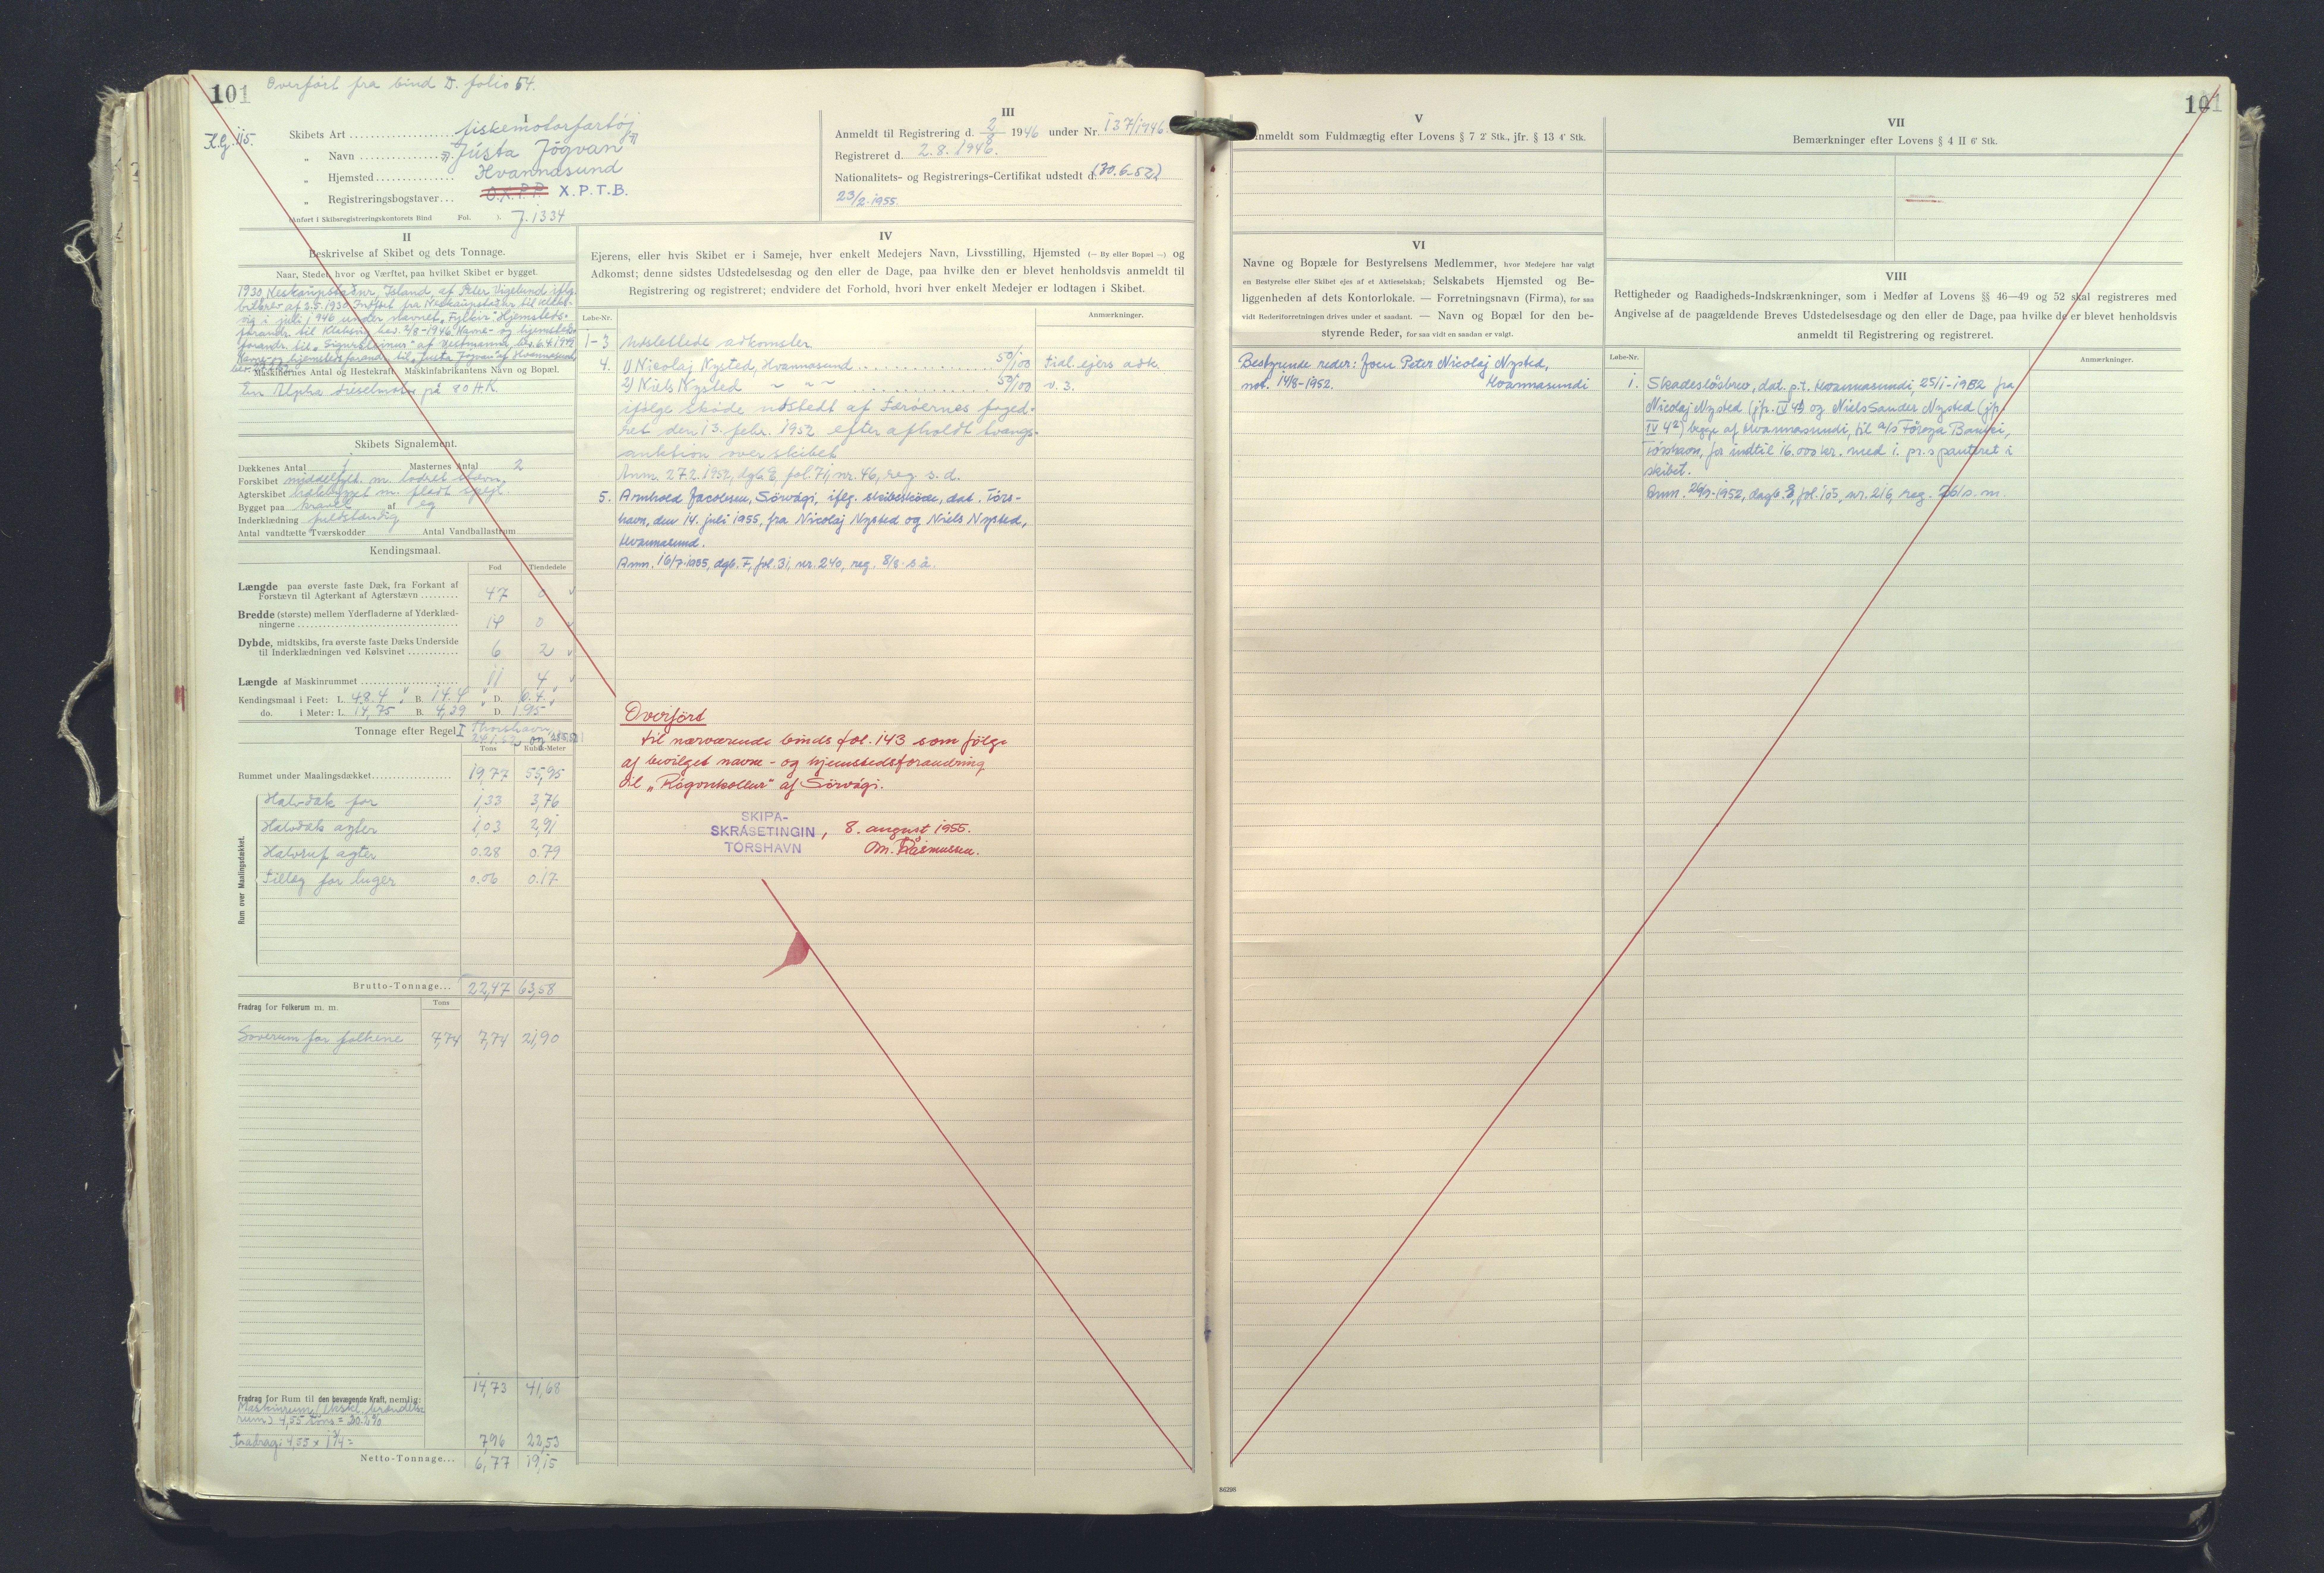 101 Overført fra bind D. folio 54.
Kg. 115.
I
Skibets Art fiskemotorfartøj
„ Navn "Jústa Jógvan"
„ Hjemsted Hvannasund
„ Registreringsbogstaver O.X.P.P. X.P.T.B.
(Anført i Skibsregistreringskontorets Bind Fol. ). J. 1334
III
Anmeldt til Registrering d. 2/8 1946 under Nr. 137/1946.
Registreret d. 2.8.1946.
Nationalitets- og Registrerings-Certifikat udstedt d. (30.6-52)
23/2.1955.
II
Beskrivelse af Skibet og dets Tonnage.
Naar, Stedet hvor og Værftet, paa hvilket Skibet er bygget.
1930, Neskaupstaðnr, Island, af Peter Vigelund iflg.
bilbrev af 2.5.1930. Indført fra Neskaupstaður til Klaks-
vig i juli 1946 under navnet "Fylkir". Hjemsteds-
forandr. til Klaksvig bev. 2/8-1946. Navne- og hjemsteds-
forandr. til "Sigursteinur" af Vestmanna, bev. 6.4.1949
Navne- og hjemstedsforand. til "Jústa Jógvan" af Hvannasund
Maskinernes Antal og Hestekraft. Maskinfabrikantens Navn og Bopæl.
En Alpha dieselmotor på 80 H.K.
Skibets Signalement.
Dækkenes Antal 1 Masternes Antal 2
Forskibet middelfyld. m. lodret stævn.
Agterskibet hækbygget m. fladt spejl.
Bygget paa kravel af eg
Inderklædning fuldstændig
Antal vandtætte Tværskodder Antal Vandballastrum
Kendingsmaal.
Fod Tiendedele
Længde paa øverste faste Dæk, fra Forkant af
Forstævn til Agterkant af Agterstævn 47 0
Bredde (største) mellem Yderfladerne af Yderklæd-
ningerne 14 0
Dybde, midtskibs, fra øverste faste Dæks Underside
til Inderklædningen ved Kølsvinet 6 2
Længde af Maskinrummet 11 4
Kendingsmaal i Feet: L. 48.4 B. 14.4 D. 6.4
do. i Meter: L. 14,75 B. 4,39 D. 1.95
Tonnage efter Regel I Thorshavn
Tons Kubik-Meter
Rummet under Maalingsdækket 19,77 55,95
Rum over Maalingsdækket.
Halvdæk for 1,33 3,76
Halvdæk agter 1,03 2,91
Halvruf agter 0.28 0.79
Tillæg for luger 0.06 0.17
Brutto-Tonnage 22,47 63,58
Fradrag for Folkerum m. m. Tons
Soverum for folkene 7,74 7,74 21,90
14,73 41,68
Fradrag for Rum til den bevægende Kraft, nemlig:
Maskinrum (ekskl. brændels-
rum) 4,55 tons = 20.2%
fradrag: 4,55 x 1 3/4 = 7,96 22,53
Netto-Tonnage 6,77 19,15
IV
Ejerens, eller hvis Skibet er i Sameje, hver enkelt Medejers Navn, Livsstilling, Hjemsted (— By eller Bopæl —) og
Adkomst; denne sidstes Udstedelsesdag og den eller de Dage, paa hvilke den er blevet henholdsvis anmeldt til
Registrering og registreret; endvidere det Forhold, hvori hver enkelt Medejer er lodtagen i Skibet.
Løbe-Nr. Anmærkninger.
1-3 udslettede adkomster
4. 1) Nicolaj Nysted, Hvannasund 50/100 tidl. ejers adk.
2) Niels Nysted ~ ~ ~ 50/100 v. 3.
ifølge skøde udstedt af Færøernes foged-
ret den 13. febr. 1952 efter afholdt tvangs-
auktion over skibet
Anm. 27.2.1952, dgb. E, fol. 71, nr. 46, reg. s. d.
5. Arnhold Jacobsen, Sörvági, iflg. skibsskøde, dat. Tórs-
havn, den 14. juli 1955, fra Nicolaj Nysted og Niels Nysted,
Hvannasund.
Anm. 16/7-1955, dgb. F, fol. 31, nr. 240, reg. 8/8. s. å.
Overført
til nærværende binds fol. 143 som følge
af bevilget navne- og hjemstedsforandring
til "Rógvukollur" af Sörvági.
SKIPA-
SKRÁSETINGIN
TÓRSHAVN
, 8. august 1955.
M. Rasmussen.
101
V
Anmeldt som Fuldmægtig efter Lovens § 7 2' Stk., jfr. § 13 4' Stk.
VI
Navne og Bopæle for Bestyrelsens Medlemmer, hvor Medejere har valgt
en Bestyrelse eller Skibet ejes af et Aktieselskab; Selskabets Hjemsted og Be-
liggenheden af dets Kontorlokale. — Forretningsnavn (Firma), for saa
vidt Rederiforretningen drives under et saadant. — Navn og Bopæl for den be-
styrende Reder, for saa vidt en saadan er valgt.
Bestyrende reder: Joen Peter Nicolaj Nysted,
not. 14/8-1952. Hvannasundi
VII
Bemærkninger efter Lovens § 4 II 6' Stk.
VIII
Rettigheder og Raadigheds-Indskrænkninger, som i Medfør af Lovens §§ 46—49 og 52 skal registreres med
Angivelse af de paagældende Breves Udstedelsesdage og den eller de Dage, paa hvilke de er blevet henholdsvis
anmeldt til Registrering og registreret.
Løbe-Nr. Anmærkninger.
1. Skadesløsbrev, dat. p.t. Hvannasundi, 25/1-1952 fra
Nicolaj Nysted (jfr. IV 4¹) og Niels Sander Nysted (jfr.
IV 4²) begge af Hvannasundi, til A/S Føroya Banki,
Tórshavn, for indtil 16.000 kr. med 1. pr.s panteret i
skibet.
Anm. 26/9-1952, dagb. E, fol. 105, nr. 216, reg. 26/s. m.
86298